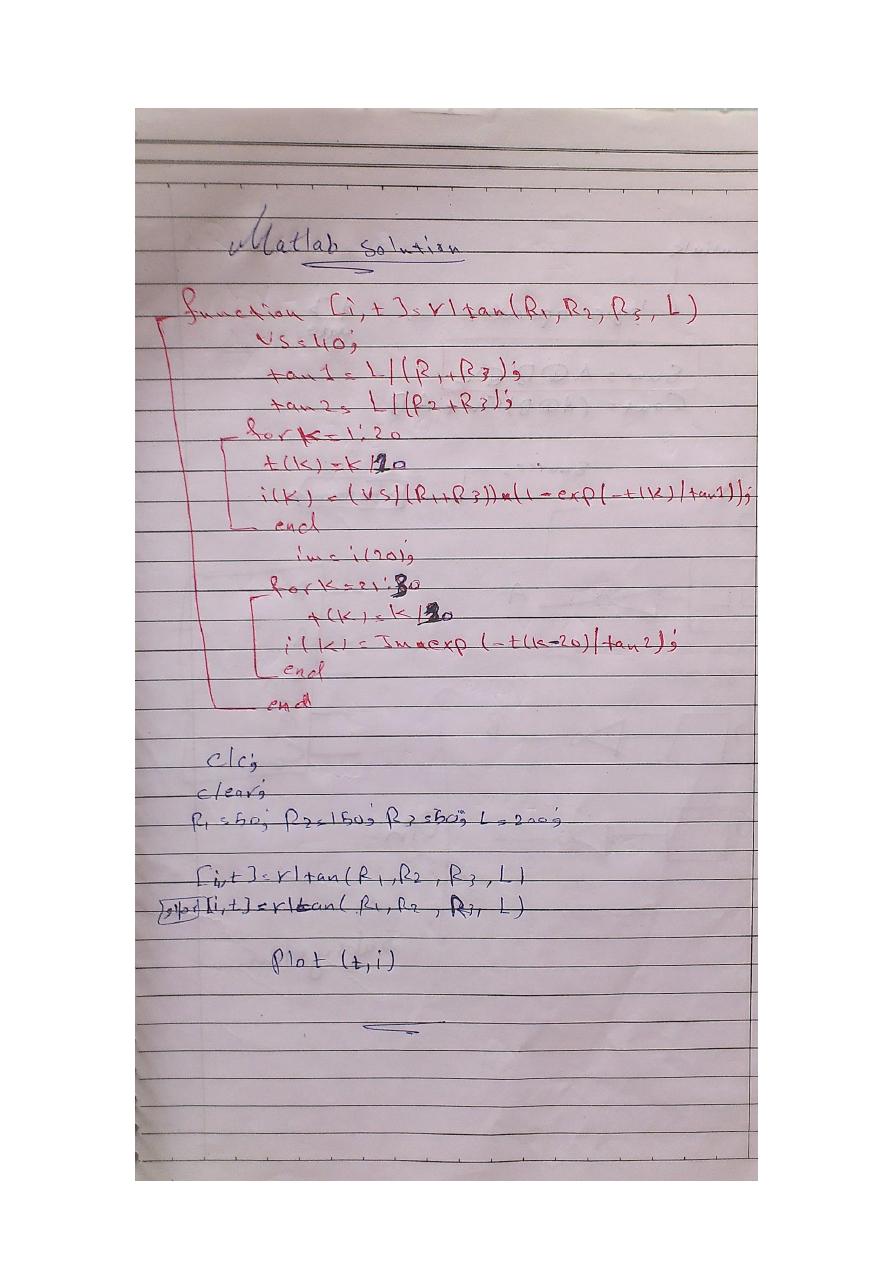 Matlab Solution
function [i,t]=rltan(R1,R2,R3,L)
VS=40;
tau1=L/(R1+R3);
tau2=L/(R2+R3);
for k=1:20
t(k)=k/20
i(k)=(VS/(R1+R3))*(1-exp(-t(k)/tau1));
end
im=i(20);
for k=21:80
t(k)=k/20
i(k)=Im*exp(-t(k-20)/tau2);
end
end
clc;
clear;
R1=50; R2=150; R3=50; L=200;
[i,t]=rltan(R1,R2,R3,L)
[i,t]=rltan(R1,R2,R3,L)
Plot(t,i)